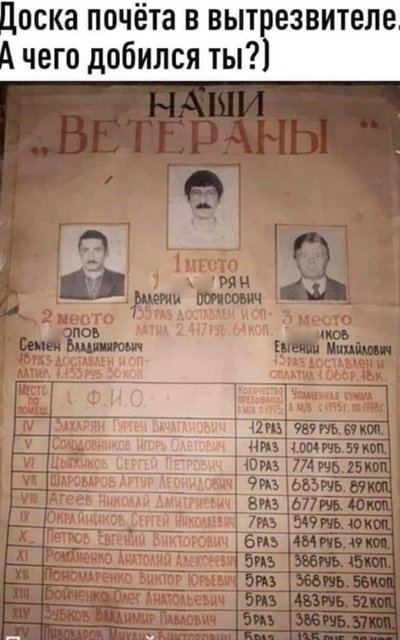 Доска почёта в вытрезвителе.
А чего добился ты?)
НАШИ
„ВЕТЕРАНЫ“
1 место
РЯН
Валерий Борисович
2 место
3 место
155 раз доставлен и оп-
латил 2.417 руб. 64 коп.
ОПОВ
Семен Владимирович
КОВ
Евгений Михайлович
раз доставлен и оп-
латил 1.133 руб 36 коп.
раз доставлен и
оплатил
Место
по
помещ.
Ф.И.О.
Количество
Уплаченная сумма
IV Захарян Гурген Вачаганович 12 раз 989 руб. 69 коп.
V Солодовников Игорь Олегович 11 раз 1.004 руб. 59 коп.
VI Цыганков Сергей Петрович 10 раз 774 руб. 25 коп.
VII Шароваров Артур Леонидович 9 раз 683 руб. 89 коп.
VIII Агеев Николай Дмитриевич 8 раз 677 руб. 40 коп.
IX Окрайников Сергей Николаевич 7 раз 549 руб. 10 коп.
X Петров Евгений Викторович 6 раз 484 руб. 19 коп.
XI Романенко Анатолий Алексеевич 5 раз 386 руб. 45 коп.
XII Пономаренко Виктор Юрьевич 5 раз 368 руб. 56 коп.
XIII Бойченко Олег Анатольевич 5 раз 483 руб. 52 коп.
XIV Зубков Владимир Павлович 5 раз 386 руб. 37 коп.
XV Пивоваров Михаил